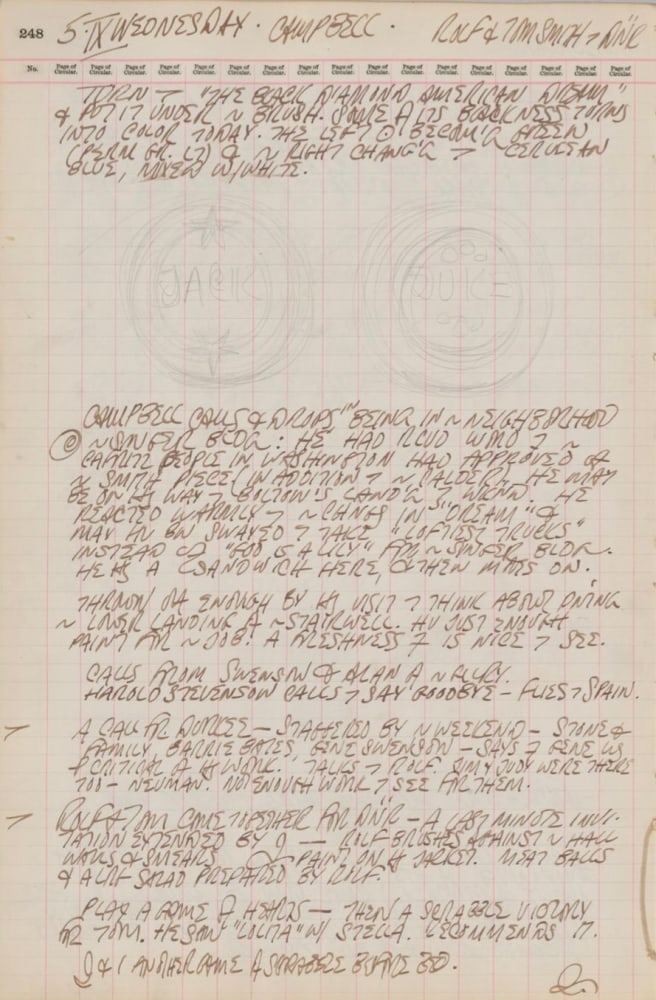 248 5·IX WEDNESDAY · CAMPBELL · ROLF & TOM SMITH > DNR
No. Page of Circular. Page of Circular. Page of Circular. Page of Circular. Page of Circular. Page of Circular. Page of Circular. Page of Circular. Page of Circular. Page of Circular. Page of Circular. Page of Circular. Page of Circular. Page of Circular. Page of Circular.
TURN > "THE BLACK DIAMOND AMERICAN DREAM"
& PUT IT UNDER ~ BRUSH. SOME A ITS BLACKNESS TURNS
INTO COLOR TODAY. THE LEFT O BECOM'G GREEN
(PERM GR. LT) & ~ RIGHT CHANG'G > CERULEAN
BLUE, MIXED W/WHITE.
JACK JUKE
CAMPBELL CALLS & DROPS IN BEING IN ~ NEIGHBORHOOD
@ ~ SINGER BLDG: HE HAD RCVD WIRD ~
PEOPLE IN WASHINGTON HAD APPROVED OF
~ SMITH PIECE IN ADDITION > ~ CALDER. HE MAY
BE ON WAY > BOLTON'S LAND'G > WKND. HE
REACTED WARMLY > ~ CHANGE IN "DREAM" &
MAY BN SWAYED > TAKE "LOFTIEST TRUCKS"
INSTEAD OF "GOD IS A LILY" FOR ~ SINGER BLDG.
HE HS A SANDWICH HERE, & THEN MOVES ON.
THROWN OFF ENOUGH BY VISIT > THINK ABOUT PNTNG
~ LOWER LANDING A ~ STAIRWELL. HV JUST ENOUGH
PAINT FOR ~ JOB! A FRESHNESS IS NICE > SEE.
CALLS FROM SWENSON & ALAN A ~
HAROLD STEVENSON CALLS > SAY GOODBYE — FLIES > SPAIN.
A CALL FR — STAGGERED BY ~ WEEKEND — STONE &
FAMILY, BARRIE BATES, GENE SWENSON — SAYS GENE WS
CRITICAL A WORK. TALKS > ROLF. JIM, JUDY WERE THERE
TOO — NEUMAN. NOT ENOUGH WORK > SEE FOR THEM.
ROLF & TOM COME TOGETHER FOR DNR — A LAST MINUTE INVI-
TATION EXTENDED BY — ROLF BRUSHES AGAINST ~ HALL
WALLS & SMEARS PAINT ON JACKET. MEAT BALLS
& A SALAD PREPARED BY ROLF.
PLAY A GAME A HEARTS — THEN A SCRABBLE VICTORY
FR TOM. HE SAW "LOLITA" W/ STELLA. RECOMMENDS IT.
& I ANOTHER GAME A SCRABBLE BEFORE BED.